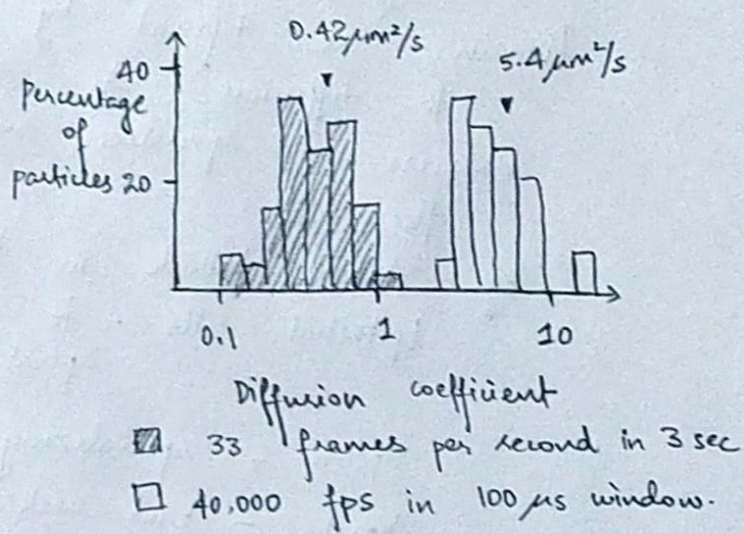 0.42 μm²/s
5.4 μm²/s
40
Percentage
of
particles 20
0.1 1 10
Diffusion coefficient
33 frames per second in 3 sec
40,000 fps in 100 μs window.